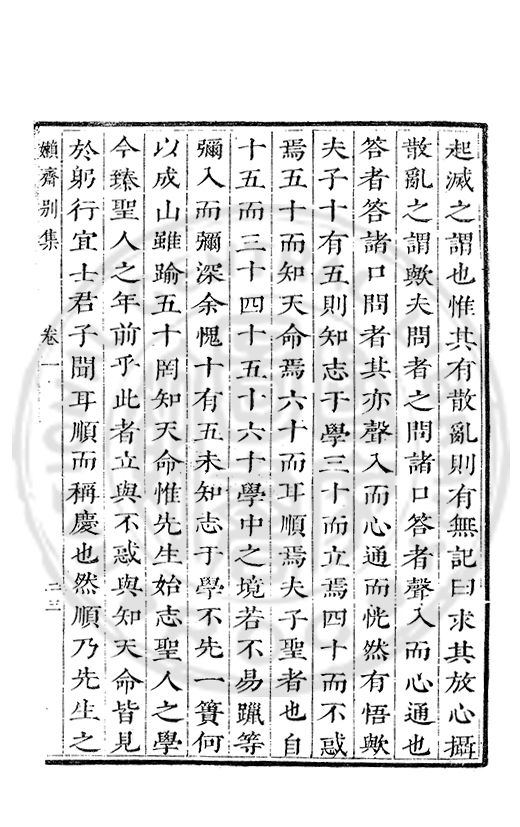 起滅之謂也惟其有散亂則有無記曰求其放心攝
散亂之謂歟夫問者之問諸口答者聲入而心通也
答者答諸口問者其亦聲入而心通而恍然有悟歟
夫子十有五則知志于學三十而立焉四十而不惑
焉五十而知天命焉六十而耳順焉夫子聖者也自
十五而三十四十五十六十學中之境若不易躐等
彌入而彌深余愧十有五未知志于學不先一簣何
以成山雖踰五十罔知天命惟先生始志聖人之學
今臻聖人之年前乎此者立與不惑與知天命皆見
於躬行宜士君子聞耳順而稱慶也然順乃先生之
嬾齋别集 卷一 二三